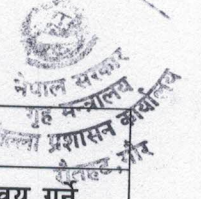 नेपाल सरकार
गृह मन्त्रालय
जिल्ला प्रशासन कार्यालय
रौतहट, गौर
गर्ने